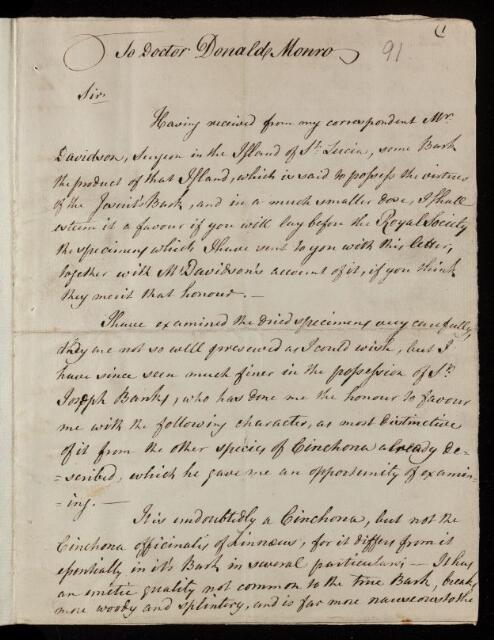 1
To Doctor Donald Monro
91
Sir,
Having received from my correspondent Mr.
Davidson, Surgeon in the Island of St. Lucia, some Bark
the product of that Island, which is said to possess the virtues
of the Jesuits Bark, and in a much smaller dose, I shall
esteem it a favour if you will lay before the Royal Society
the specimens which I have sent to you with this letter,
together with Mr Davidson's account of it, if you think
they merit that honour. —
I have examined the dried specimens very carefully,
they are not so well preserved as I could wish, but I
have since seen much finer in the possession of Sr.
Joseph Banks, who has done me the honour to favour
me with the following character, as most distinctive
of it from the other species of Cinchona already de-
-scribed, which he gave me an opportunity of examin-
-ing. —
It is undoubtedly a Cinchona, but not the
Cinchona officinalis of Linnæus, for it differs from it
essentially in its Bark in several particulars; — It has
an emetic quality not common to the true Bark, breaks
more woody and splintery, and is far more nauseous to the